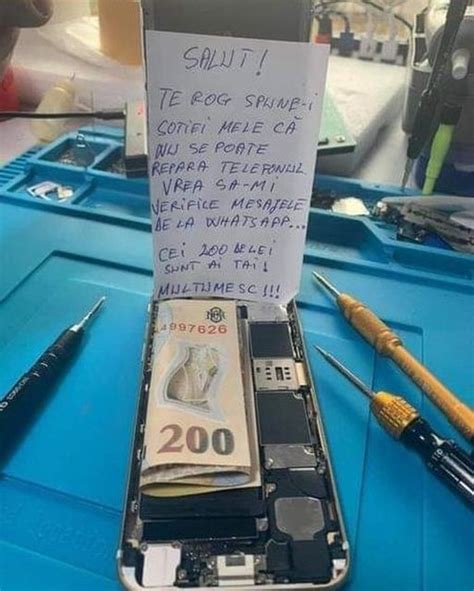 SALUT!
TE ROG SPUNE-I
SOTIEI MELE CĂ
NU SE POATE
REPARA TELEFONUL
VREA SA-MI
VERIFILE MESAJELE
DE LA WHATSAPP...
CEI 200 DE LEI
SUNT AI TAI!
MULTUMESC!!!
4997626
200